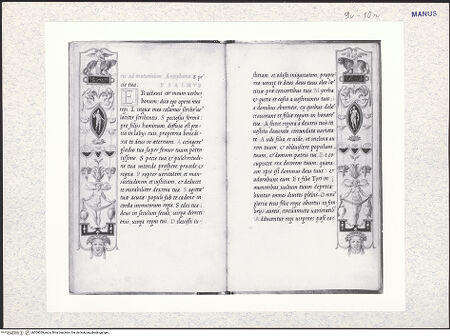 9v-10r
MANUS
ra ad matutinum Antiphona Spe
cie tua PSALMVS
Eructauit cor meum uerbum
bonum, dico ego opera mea
regi. Lingua mea calamus scribæ ue
lociter scribentis. Speciosus forma
præ filiis hominum, diffusa est gra
tia in labiis tuis, propterea benedi
xit te deus in æternum. Accingere
gladio tuo super femur tuum poten
tissime. Specie tua et pulchritudi
ne tua intende, prospere procede et
regna. Propter ueritatem et man
suetudinem et iustitiam, et deducet
te mirabiliter dextera tua. Sagittæ
tuæ acutæ, populi sub te cadent in
corda inimicorum regis. Sedes tua
deus in seculum seculi, uirga directi
onis, uirga regni tui. Dilexisti iu
stitiam et odisti iniquitatem, propte
rea unxit te deus deus tuus oleo læ
titiæ præ consortibus tuis. Myrrha
et gutta et casia a uestimentis tuis
a domibus eburneis, ex quibus dele
ctauerunt te filiæ regum in honore
tuo. Astitit regina a dextris tuis in
uestitu deaurato circundata uarieta
te. Audi filia et uide, et inclina au
rem tuam, et obliuiscere populum
tuum, et domum patris tui. Et con
cupiscet rex decorem tuum, quoni
am ipse est dominus deus tuus et
adorabunt eum. Et filiæ Tyri in
muneribus uultum tuum depreca
buntur omnes diuites plebis. Omnis
gloria eius filiæ regis ab intus in fim
briis aureis, circumamicta uarietatibus
Adducentur regi uirgines post eam